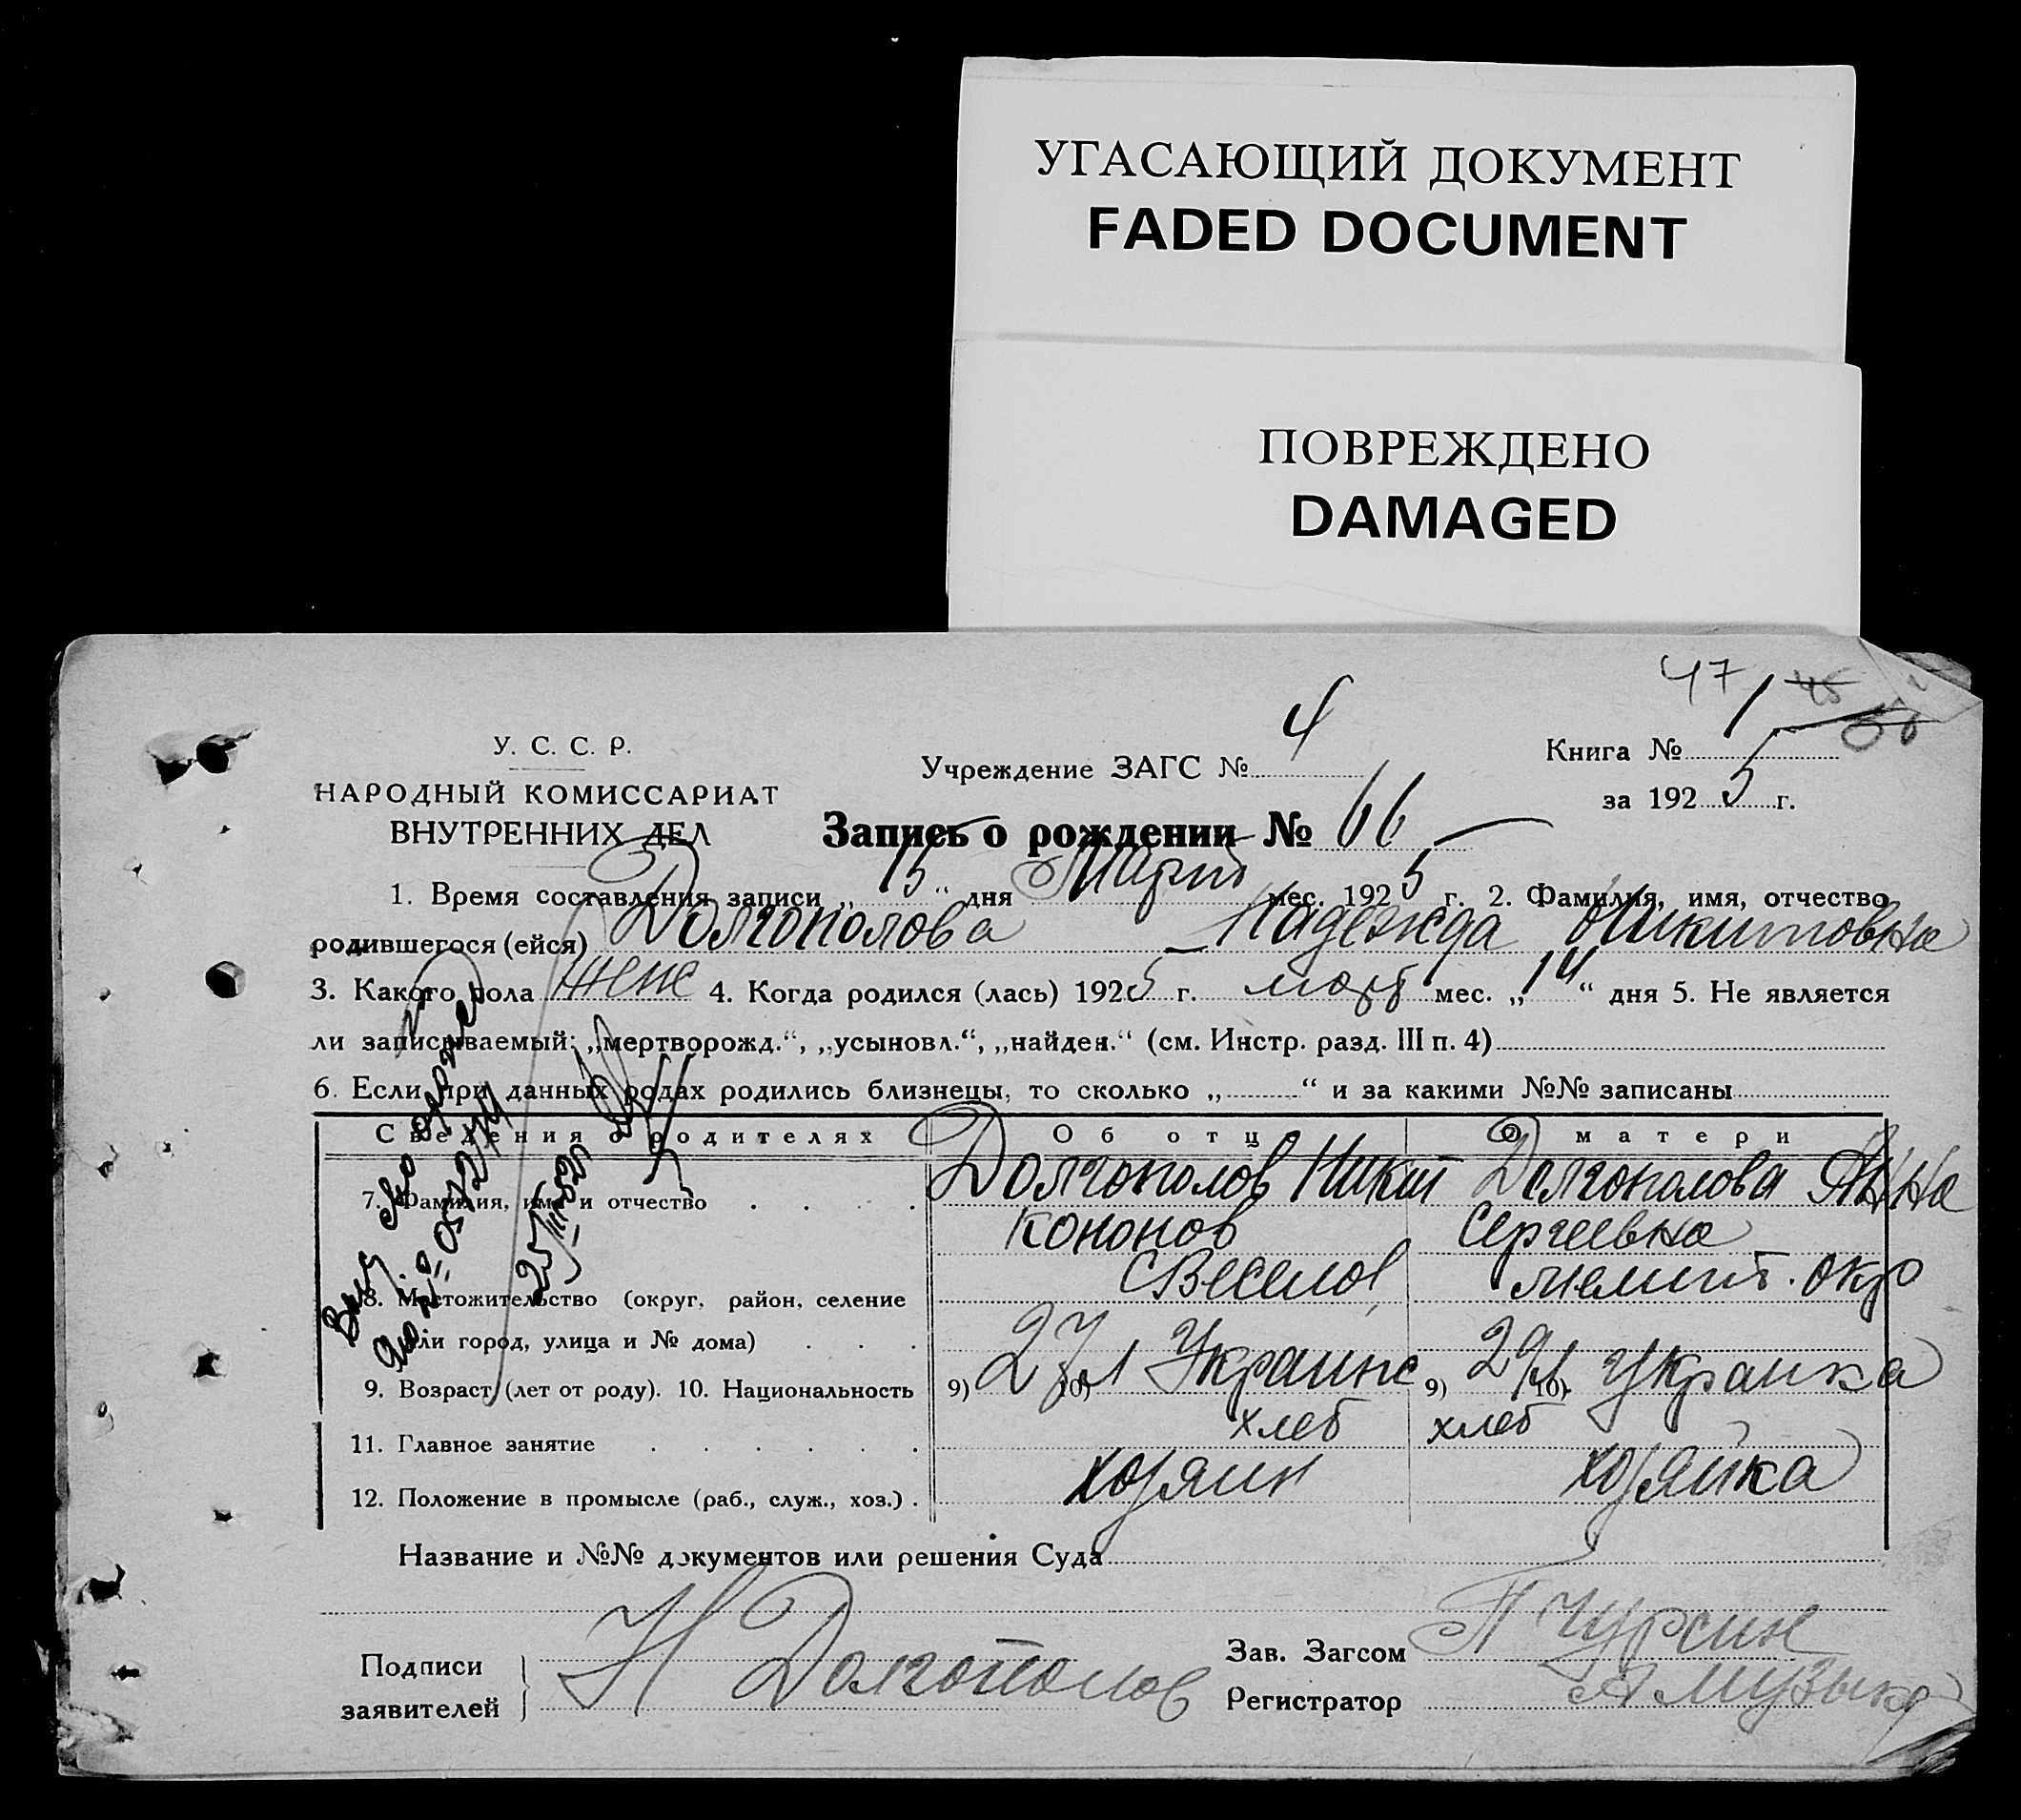 УГАСАЮЩИЙ ДОКУМЕНТ
FADED DOCUMENT
ПОВРЕЖДЕНО
DAMAGED
47 45
50
У. С. С. Р.
НАРОДНЫЙ КОМИССАРИАТ
ВНУТРЕННИХ ДЕЛ
Учреждение ЗАГС № 4
Книга № 1
за 1925 г.
Запись о рождении № 66
1. Время составления записи „15“ дня Март мес. 1925 г. 2. Фамилия, имя, отчество
родившегося (ейся) Долгополова Надежда Никитовна
3. Какого пола жене 4. Когда родился (лась) 1925 г. март мес. „14“ дня 5. Не является
ли записываемый: „мертворожд.“, „усыновл.“, „найден.“ (см. Инстр. разд. III п. 4)
6. Если при данных родах родились близнецы, то сколько „ “ и за какими №№ записаны
Сведения о родителях Об отц О матери
7. Фамилия, имя и отчество Долгополов Никит Долгополова Анна
Кононов Сергеевна
8. Местожительство (округ, район, селение СВеселое мелит. окр
или город, улица и № дома)
9. Возраст (лет от роду). 10. Национальность 9) 27 л 10) Украине 9) 29 л 10) Украинка
11. Главное занятие хлеб хлеб
12. Положение в промысле (раб., служ., хоз.) хозяин хозяйка
Название и №№ документов или решения Суда
Подписи
заявителей
Н Долгополов
Зав. Загсом
Регистратор А Музыка